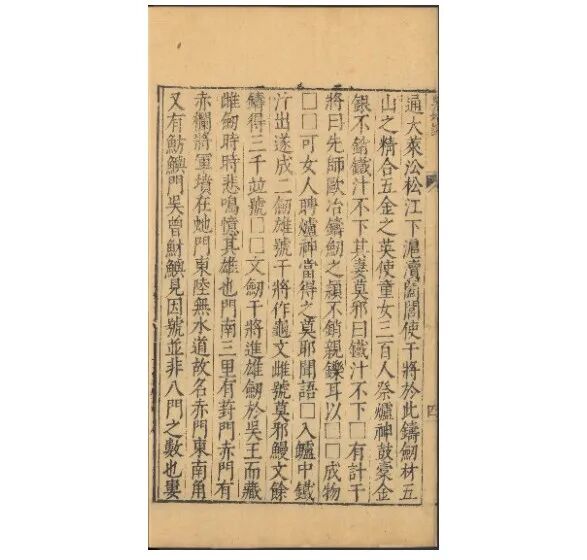 通大萊㳂松江下滬瀆闔閭使干將於此鑄劒材五
山之精合五金之英使童女三百人祭爐神鼓橐金
銀不銷鐵汁不下其妻莫邪曰鐵汁不下□有計干
將曰先師歐冶鑄劒之潁不銷親鑠耳以□□成物
□□可女人聘爐神當得之莫耶聞語□入鑪中鐵
汁出遂成二劒雄號干將作龜文雌號莫邪鰻文餘
鑄得三千並號□□文劒干將進雄劒於吳王而藏
雌劒時時悲鳴憶其雄也門南三里有葑門赤門有
赤欄將軍墳在虵門東陸無水道故名赤門東南角
又有魴鱮門吳曾魴鱮見因號並非八門之數也婁
四